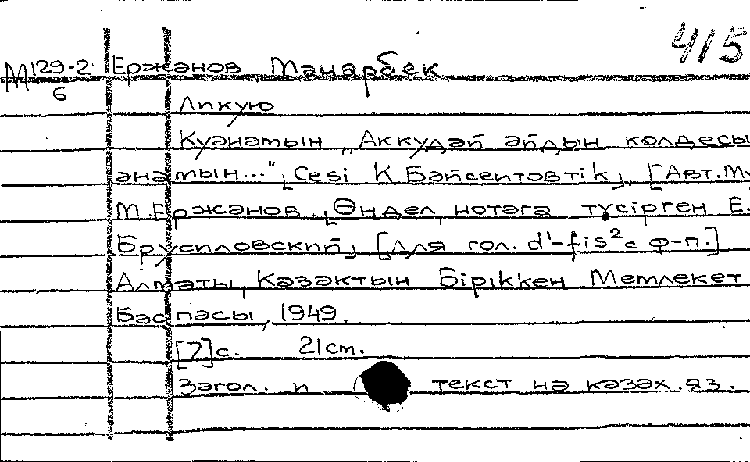 415
М129-2 Ержанов Манарбек
6
Ликую
Куанамын „Аккудай айдын колдесы
анамын..." [Сезі К. Байсеитовтік], [Авт. Му
М. Ержанов. [Өндел нотага тусірген Е.
Брусиловский] [Для гол. d'-fis² с ф-п.]
Алматы, Казактын Біріккен Мемлекет
Баспасы, 1949.
[7]с. 21cm.
Загол. и текст на казах. яз.